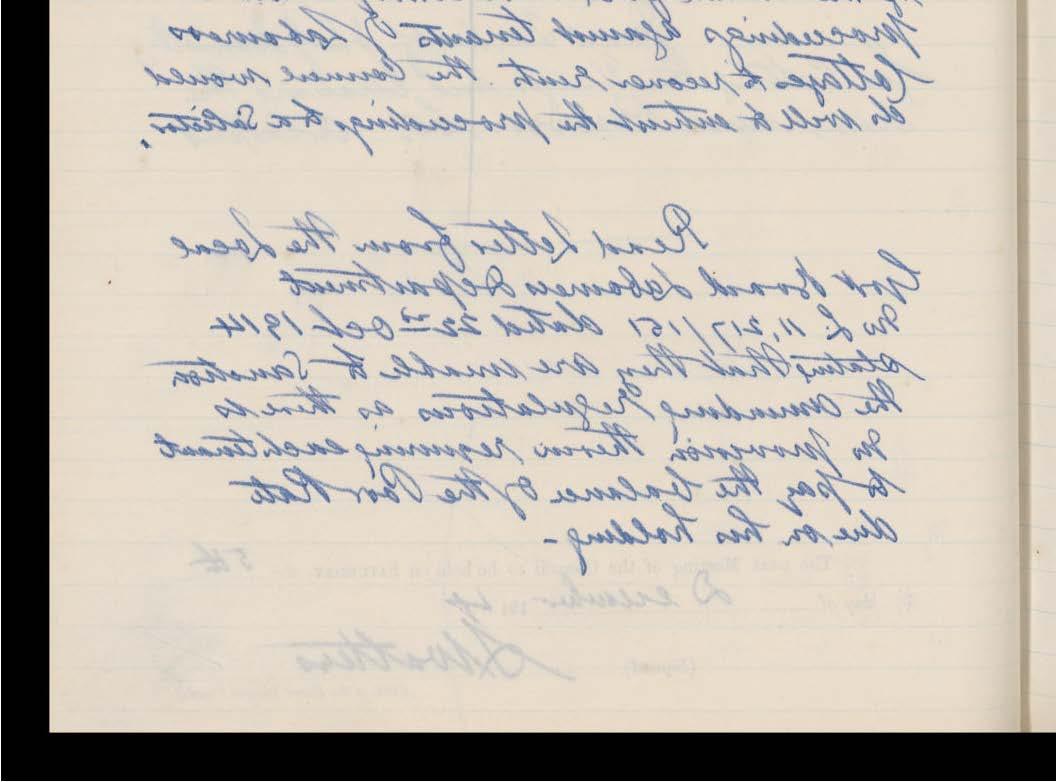 proceedings against tenants of Labourers
Cottages to recover rents. The Council would
do well to entrust the proceedings to a Solicitor.
Read Letter from the Local
Govt Board Labourers Department
No L. 11,217/151 dated 22nd Oct 1914
stating that they are unable to Sanction
the amending regulations as there is
no provision therein requiring each tenant
to pay the balance of the Poor Rate
due on his holding -
The next Meeting of the Council to be held on SATURDAY 5th
day of December 191
(Signed)